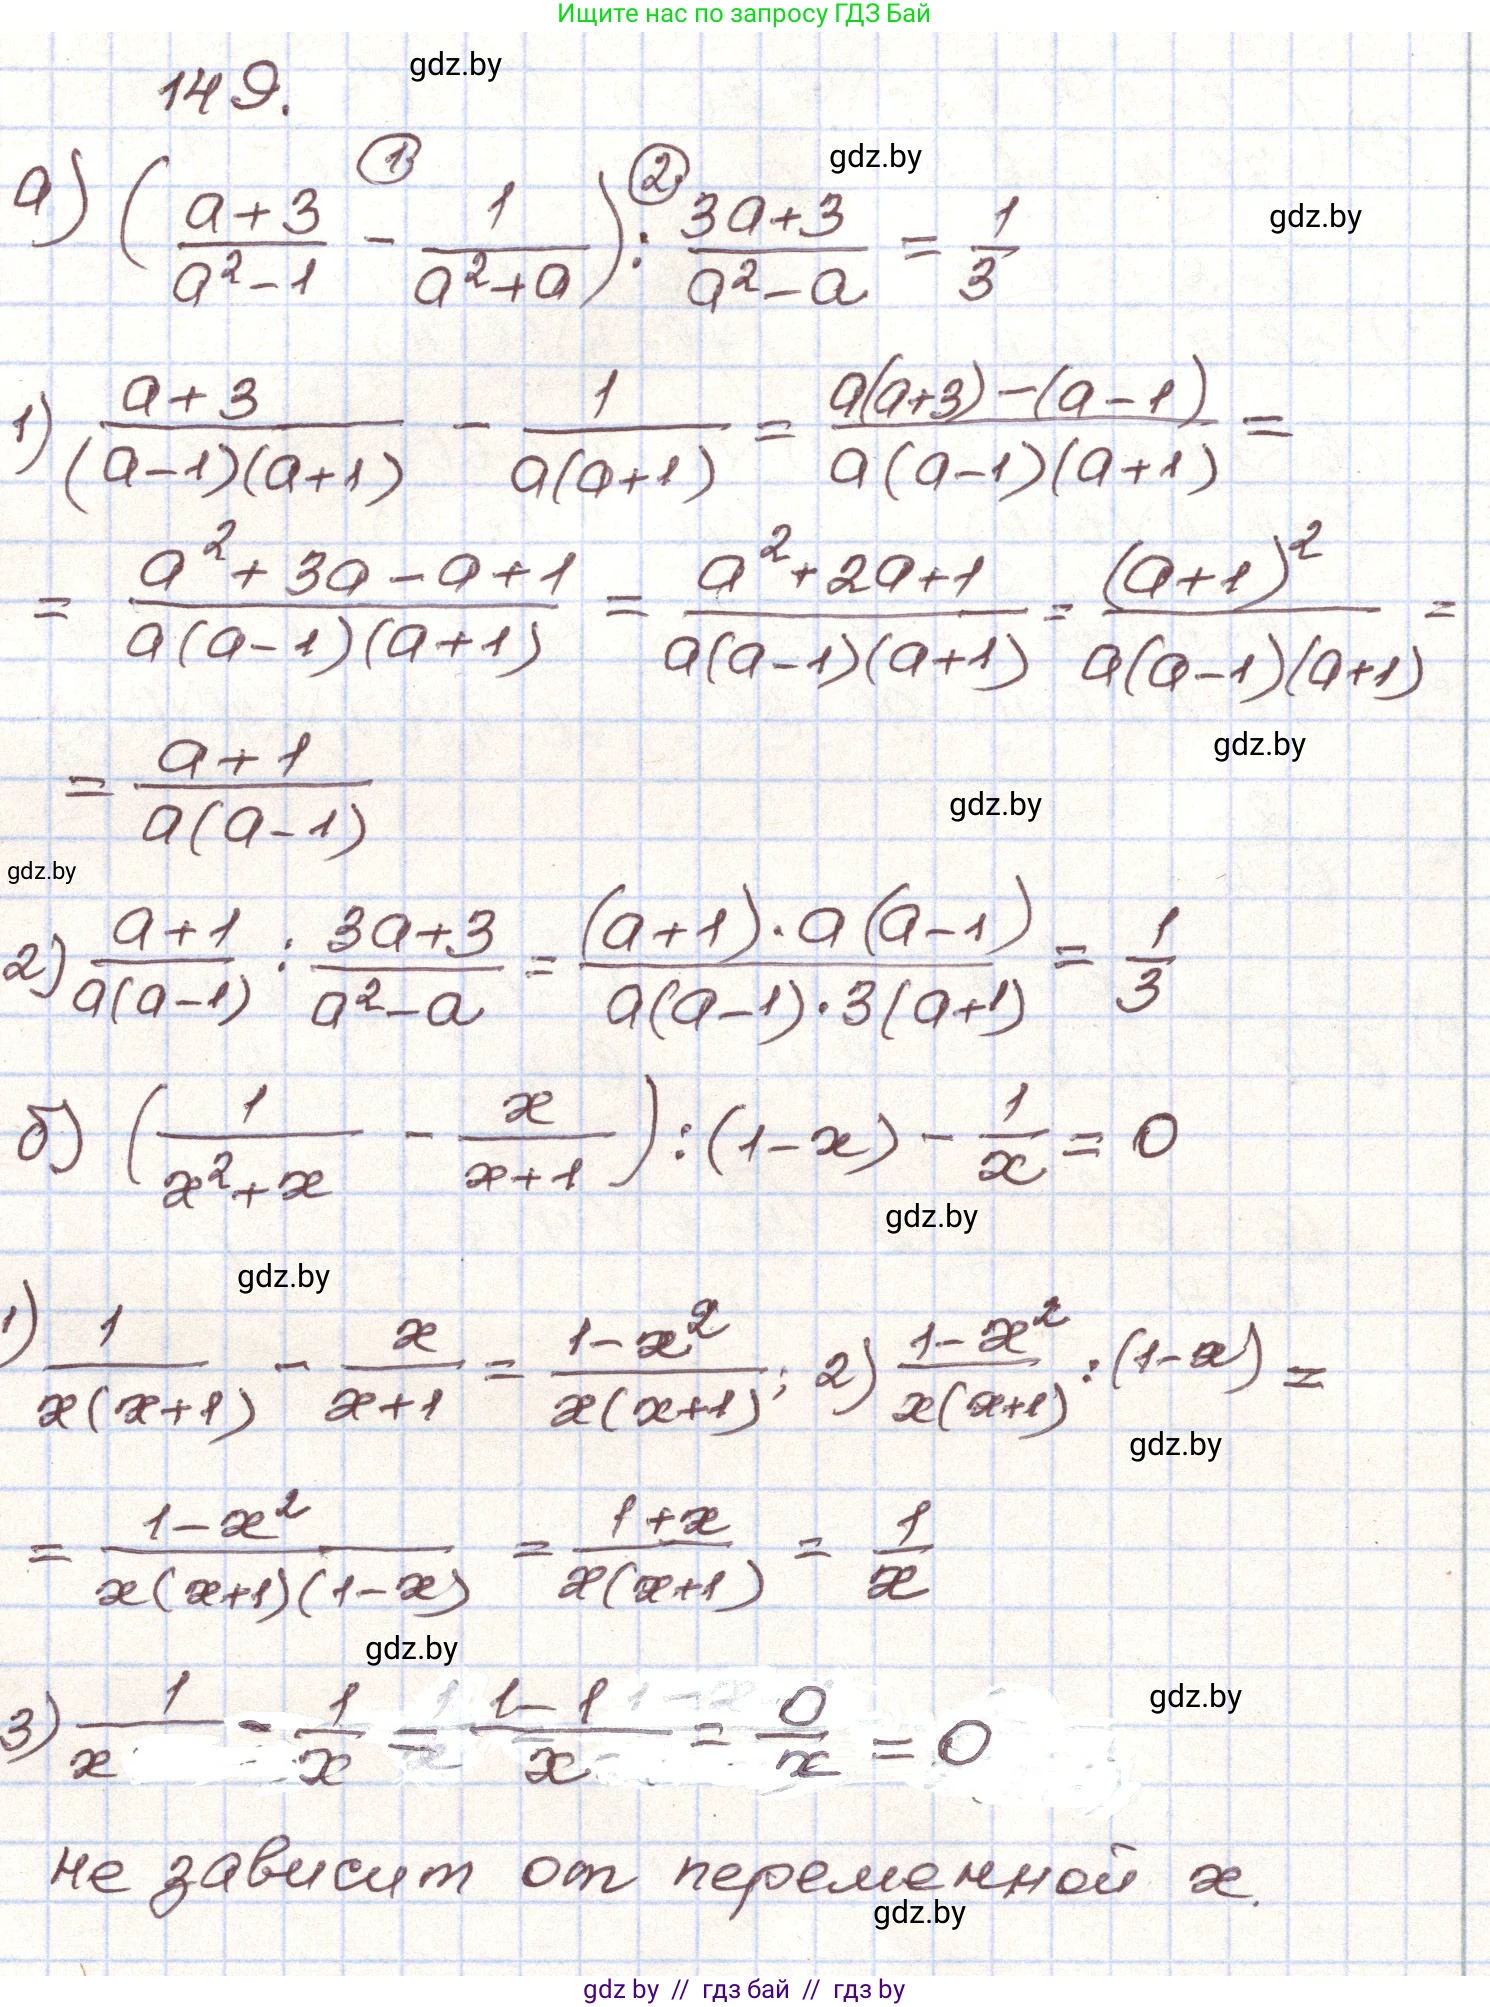 Ищите нас по запросу ГДЗ Бай
149.
gdz.by
① ②
gdz.by
gdz.by
а) ( (a+3)/(a²-1) - 1/(a²+a) ) : (3a+3)/(a²-a) = 1/3
1) (a+3)/((a-1)(a+1)) - 1/(a(a+1)) = (a(a+3)-(a-1))/(a(a-1)(a+1)) =
= (a²+3a-a+1)/(a(a-1)(a+1)) = (a²+2a+1)/(a(a-1)(a+1)) = (a+1)²/(a(a-1)(a+1)) =
gdz.by
= (a+1)/(a(a-1))
gdz.by
gdz.by
2) (a+1)/(a(a-1)) : (3a+3)/(a²-a) = ((a+1)·a(a-1))/(a(a-1)·3(a+1)) = 1/3
б) ( 1/(x²+x) - x/(x+1) ) : (1-x) - 1/x = 0
gdz.by
gdz.by
1) 1/(x(x+1)) - x/(x+1) = (1-x²)/(x(x+1)); 2) (1-x²)/(x(x+1)) : (1-x) =
gdz.by
= (1-x²)/(x(x+1)(1-x)) = (1+x)/(x(x+1)) = 1/x
gdz.by
gdz.by
3) 1/x - 1/x = (1-1)/x = 0/x = 0
не зависит от переменной x.
gdz.by
gdz.by // гдз бай // гдз by